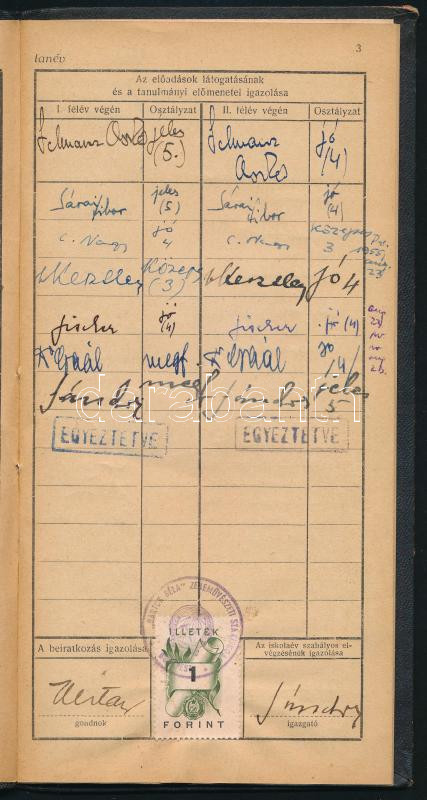 3
tanév
Az előadások látogatásának
és a tanulmányi előmenetel igazolása
I. félév végén Osztályzat II. félév végén Osztályzat
jeles jó
(5.) (4)
Sárai Tibor jeles (5) Sárai Tibor jó (4)
C. Nagy jó 4 C. Nagy közepes 3
1955
23
Keszler közepes (3) Keszler jó 4
Fischer jó (4) Fischer jó (4)
Dr Gaál megf. Dr Gaál jó /4/
Sándor megf Sándor jeles 5
darabanth
EGYEZTETVE EGYEZTETVE
"BARTÓK BÉLA" ZENEMŰVÉSZETI SZAKISKOLA
ILLETÉK
1
FORINT
A beiratkozás igazolása
Az iskolaév szabályos el-
végzésének igazolása
Sándor
gondnok igazgató